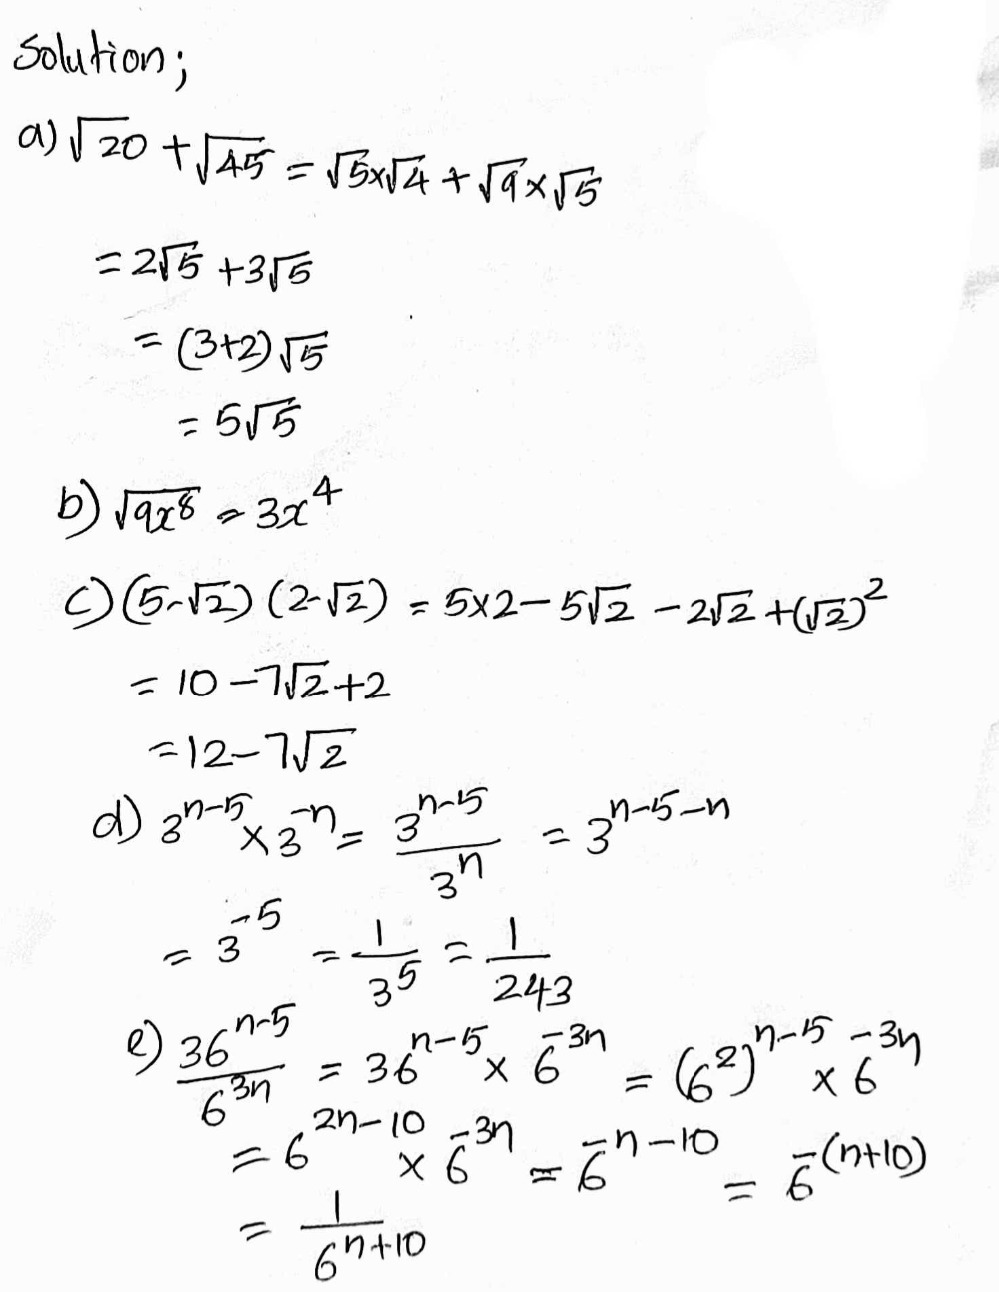 Solution;
a) √20 + √45 = √5×√4 + √9×√5
= 2√5 + 3√5
= (3+2)√5
= 5√5
b) √9x⁸ = 3x⁴
c) (5-√2)(2-√2) = 5×2 - 5√2 - 2√2 + (√2)²
= 10 - 7√2 + 2
= 12 - 7√2
d) 3^{n-5} × 3^{-n} = 3^{n-5}/3^{n} = 3^{n-5-n}
= 3^{-5} = 1/3^{5} = 1/243
e) 36^{n-5}/6^{3n} = 36^{n-5} × 6^{-3n} = (6²)^{n-5} × 6^{-3n}
= 6^{2n-10} × 6^{-3n} = 6^{-n-10} = 6^{-(n+10)}
= 1/6^{n+10}